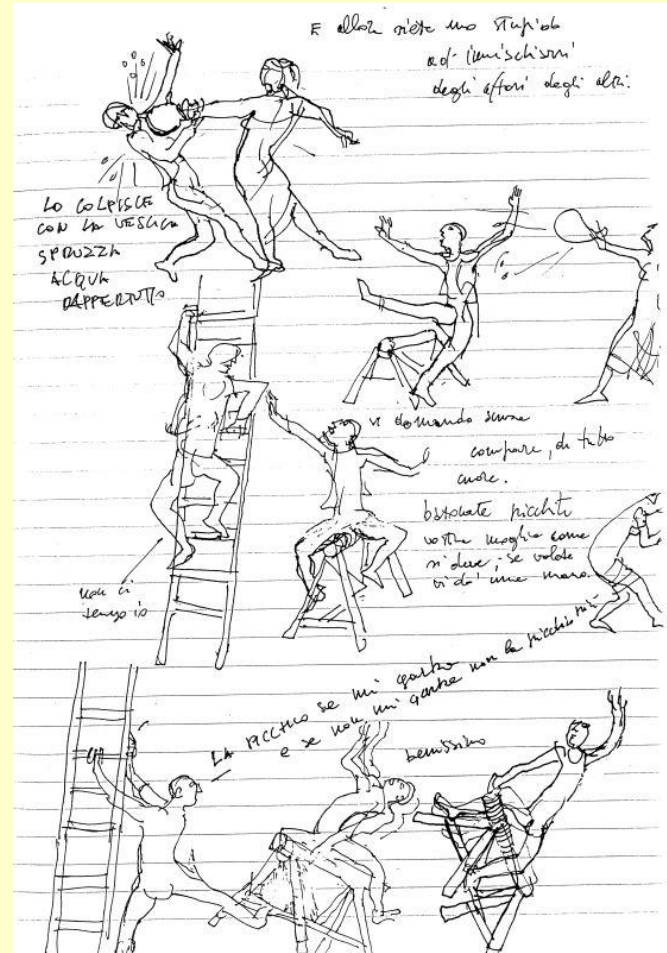 E allora siete uno stupido
ad immischiarvi
degli affari degli altri.
LO COLPISCE
CON LA VESCICA
SPRUZZA
ACQUA
DAPPERTUTTO
vi domando scusa
compare, di tutto
cuore.
bastonate picchiate
vostra moglie come
si deve, se volete
vi do' una mano.
non ci
tengo io
LA PICCHIO se mi garba
e se non mi garba non la picchio
benissimo